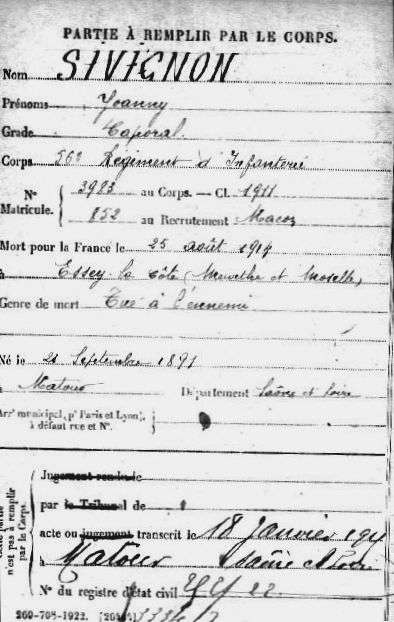 PARTIE À REMPLIR PAR LE CORPS.
Nom SIVIGNON
Prénoms Joanny
Grade Caporal
Corps 56e Régiment d'Infanterie
N° Matricule. 3983 au Corps. — Cl. 1911
852 au Recrutement Macon
Mort pour la France le 25 août 1914
à Essey la côte (Meurthe et Moselle)
Genre de mort Tué à l'ennemi
Né le 21 Septembre 1891
à Matour Département Saône et Loire
Arrt municipal (pr Paris et Lyon), à défaut rue et N°.
Jugement rendu le
par le Tribunal de
acte ou jugement transcrit le 18 Janvier
à Matour Saône et Loire
N° du registre d'état civil
n'est pas à remplir par le Corps.
260-708-1922.